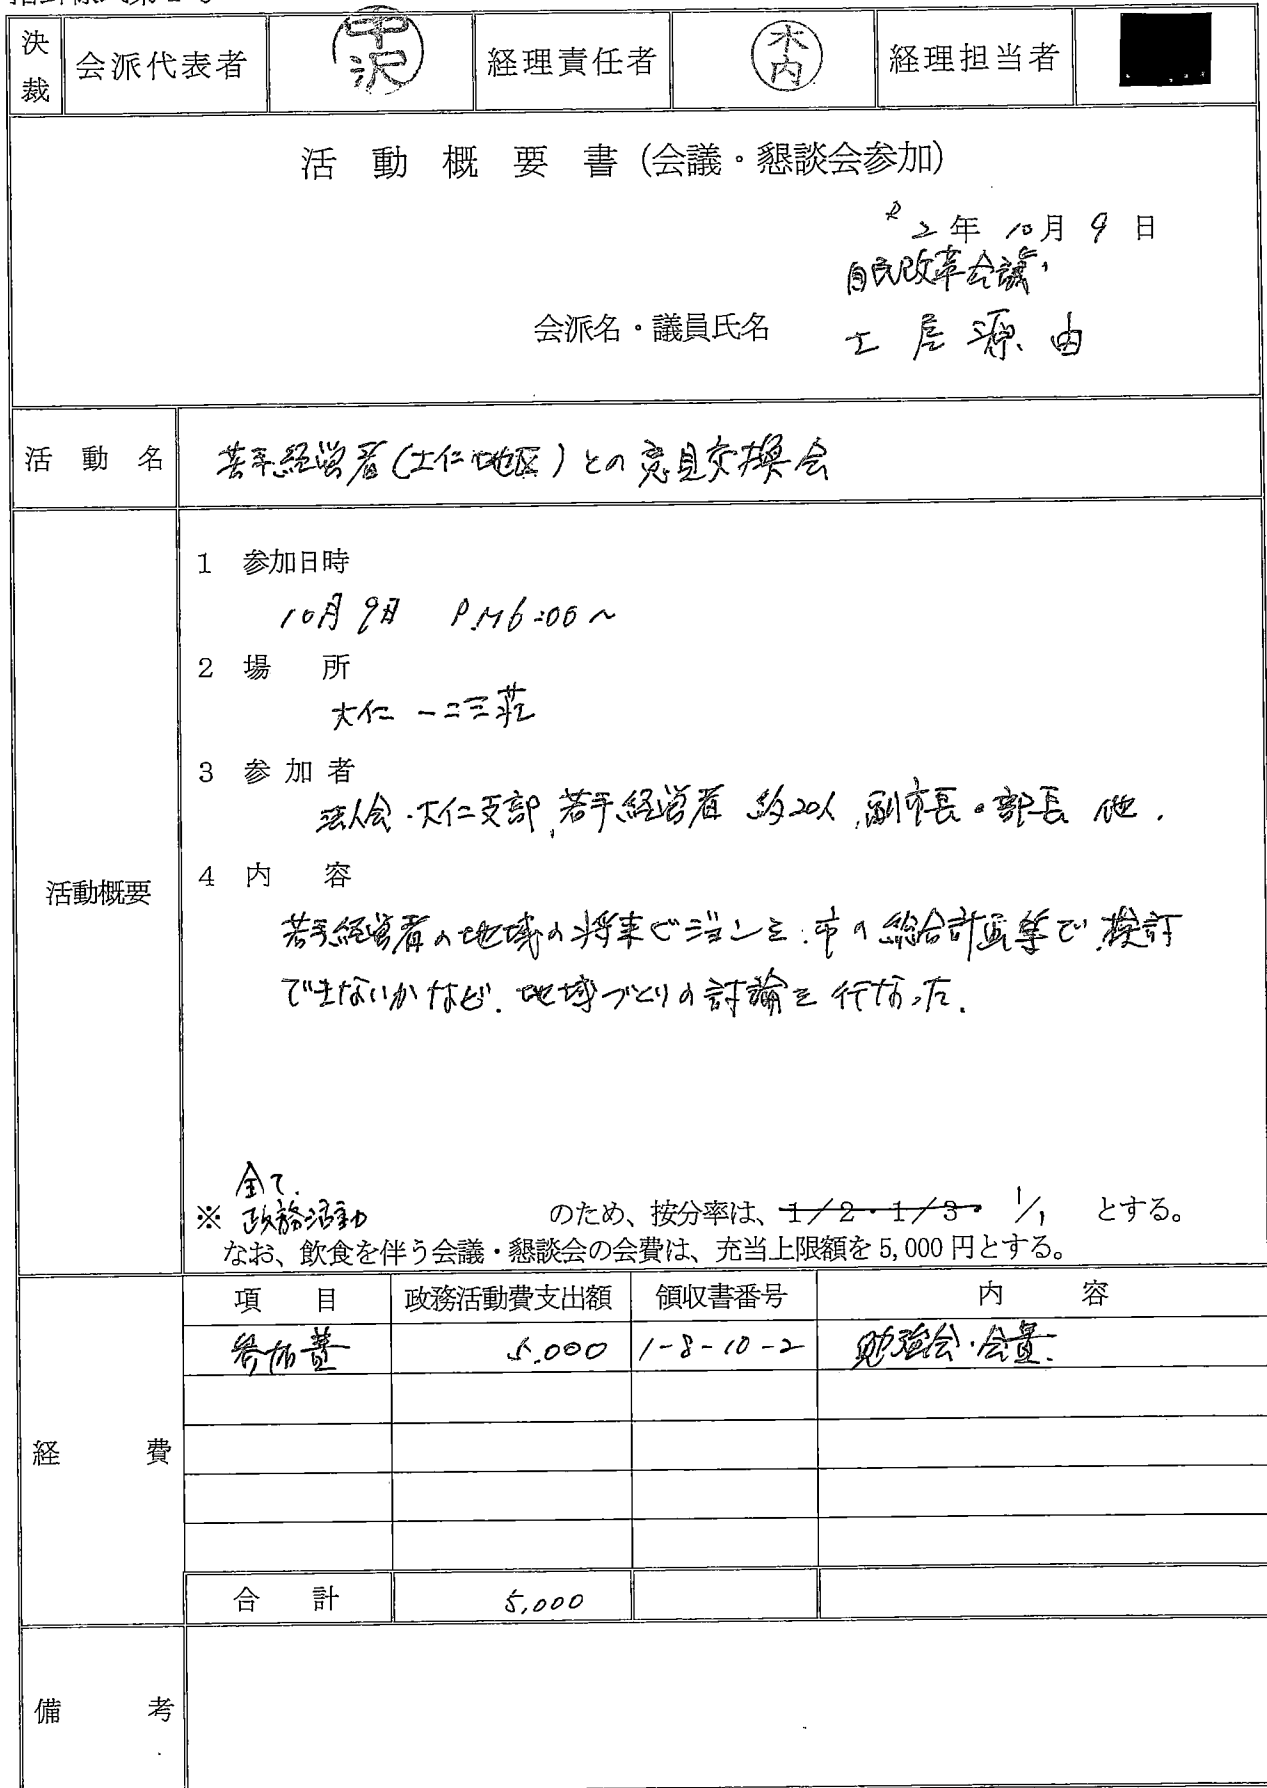 決裁 会派代表者 中沢 経理責任者 木内 経理担当者
活動概要書(会議・懇談会参加)
R2年10月9日
自民改革会議
会派名・議員氏名 土屋源由
活動名 若手経営者(大仁地区)との意見交換会
活動概要
1 参加日時
10月9日 P.M6:00~
2 場所
大仁 一二三荘
3 参加者
法人会・大仁支部、若手経営者 約20人、副市長・部長 他.
4 内容
若手経営者の地域の将来ビジョンを、市の総合計画等で、検討
できないかなど、地域づくりの討論を行なった.
全て.
※ 政務活動 のため、按分率は、1/2・1/3・ 1/1 とする。
なお、飲食を伴う会議・懇談会の会費は、充当上限額を5,000円とする。
経費
項目 政務活動費支出額 領収書番号 内容
参加費 5.000 1-8-10-2 勉強会・会費.
合計 5,000
備考